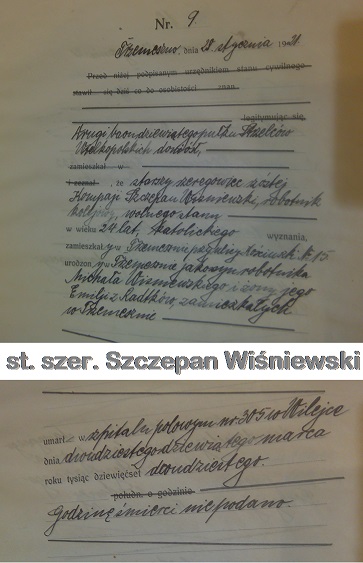 Nr. 9
Trzemeszno, dnia 28 stycznia 1921.
Przed niżej podpisanym urzędnikiem stanu cywilnego
stawił się dziś co do osobistości znan
legitymując się
Drugi baon dziewiątego pułku Strzelców
Wielkopolskich doniósł,
zamieszkał w
i zeznał, że starszy szeregowiec szóstej
Kompanji Szczepan Wiśniewski, robotnik
kolejowy, wolnego stanu
w wieku 24 lat, katolickiego wyznania,
zamieszkały w Trzemesznie, przy ulicy № 15.
urodzony w Trzemesznie jako syn robotnika
Michała Wiśniewskiego i żony jego
Emilji z Radtków, zamieszkałych
w Trzemesznie
st. szer. Szczepan Wiśniewski
umarł w szpitalu polowym nr. 305 w Wilejce
dnia dwudziestego dziewiątego marca
roku tysiąc dziewięćset dwudziestego.
połudn. o godzinie
Godzinę śmierci nie podano.